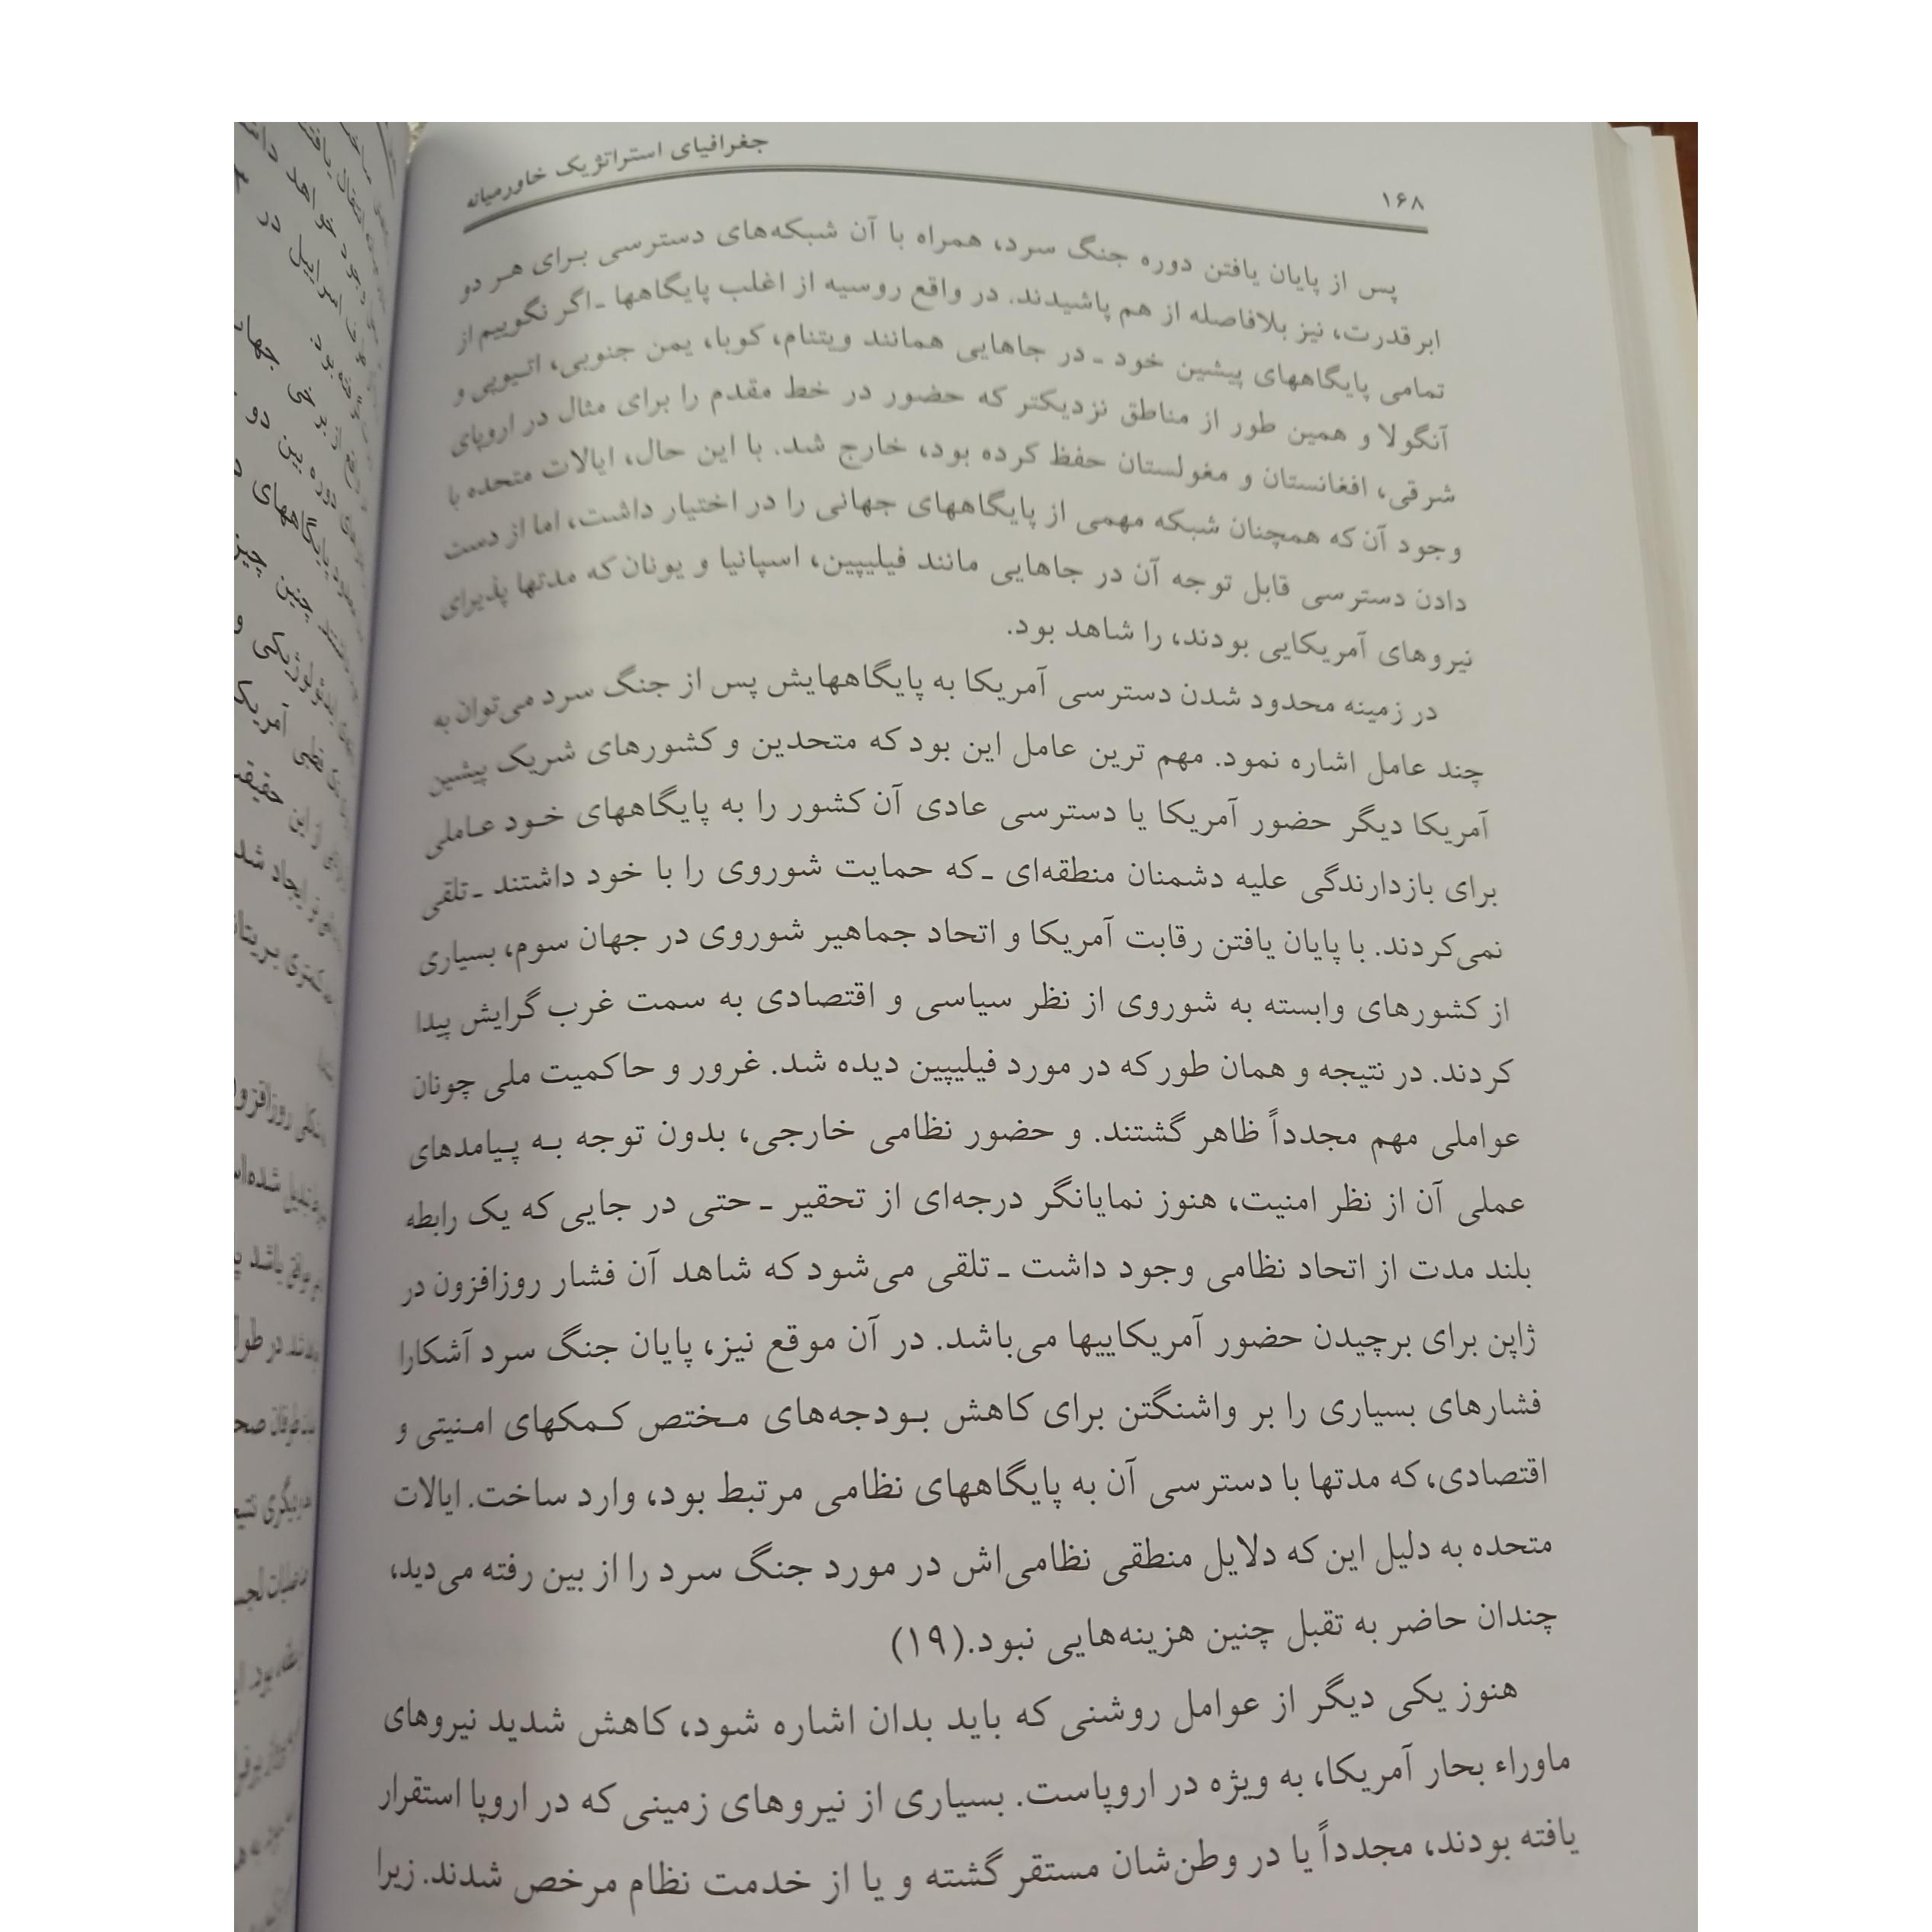 ۱۶۸
جغرافیای استراتژیک خاورمیانه
پس از پایان یافتن دوره جنگ سرد، همراه با آن شبکه‌های دسترسی برای هر دو
ابرقدرت، نیز بلافاصله از هم پاشیدند. در واقع روسیه از اغلب پایگاهها ـ اگر نگوییم از
تمامی پایگاههای پیشین خود ـ در جاهایی همانند ویتنام، کوبا، یمن جنوبی، اتیوپی و
آنگولا و همین طور از مناطق نزدیکتر که حضور در خط مقدم را برای مثال در اروپای
شرقی، افغانستان و مغولستان حفظ کرده بود، خارج شد. با این حال، ایالات متحده با
وجود آن که همچنان شبکه مهمی از پایگاههای جهانی را در اختیار داشت، اما از دست
دادن دسترسی قابل توجه آن در جاهایی مانند فیلیپین، اسپانیا و یونان که مدتها پذیرای
نیروهای آمریکایی بودند، را شاهد بود.
در زمینه محدود شدن دسترسی آمریکا به پایگاههایش پس از جنگ سرد می‌توان به
چند عامل اشاره نمود. مهم ترین عامل این بود که متحدین و کشورهای شریک پیشین
آمریکا دیگر حضور آمریکا یا دسترسی عادی آن کشور را به پایگاههای خود عاملی
برای بازدارندگی علیه دشمنان منطقه‌ای ـ که حمایت شوروی را با خود داشتند ـ تلقی
نمی‌کردند. با پایان یافتن رقابت آمریکا و اتحاد جماهیر شوروی در جهان سوم، بسیاری
از کشورهای وابسته به شوروی از نظر سیاسی و اقتصادی به سمت غرب گرایش پیدا
کردند. در نتیجه و همان طور که در مورد فیلیپین دیده شد. غرور و حاکمیت ملی چونان
عواملی مهم مجدداً ظاهر گشتند. و حضور نظامی خارجی، بدون توجه به پیامدهای
عملی آن از نظر امنیت، هنوز نمایانگر درجه‌ای از تحقیر ـ حتی در جایی که یک رابطه
بلند مدت از اتحاد نظامی وجود داشت ـ تلقی می‌شود که شاهد آن فشار روزافزون در
ژاپن برای برچیدن حضور آمریکاییها می‌باشد. در آن موقع نیز، پایان جنگ سرد آشکارا
فشارهای بسیاری را بر واشنگتن برای کاهش بودجه‌های مختص کمکهای امنیتی و
اقتصادی، که مدتها با دسترسی آن به پایگاههای نظامی مرتبط بود، وارد ساخت. ایالات
متحده به دلیل این که دلایل منطقی نظامی‌اش در مورد جنگ سرد را از بین رفته می‌دید،
چندان حاضر به تقبل چنین هزینه‌هایی نبود.(۱۹)
هنوز یکی دیگر از عوامل روشنی که باید بدان اشاره شود، کاهش شدید نیروهای
ماوراء بحار آمریکا، به ویژه در اروپاست. بسیاری از نیروهای زمینی که در اروپا استقرار
یافته بودند، مجدداً یا در وطن‌شان مستقر گشته و یا از خدمت نظام مرخص شدند. زیرا